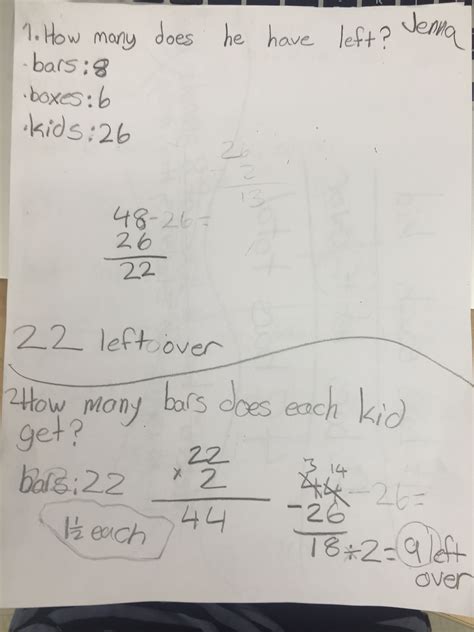 1. How many does he have left? Jenna
· bars: 8
· boxes: 6
· kids: 26
26
2
13
48-26=
26
22
22 leftover
2 How many bars does each kid
get?
bars: 22
1½ each
22
× 2
44
3 14
44-26=
-26
18÷2=9 left
over